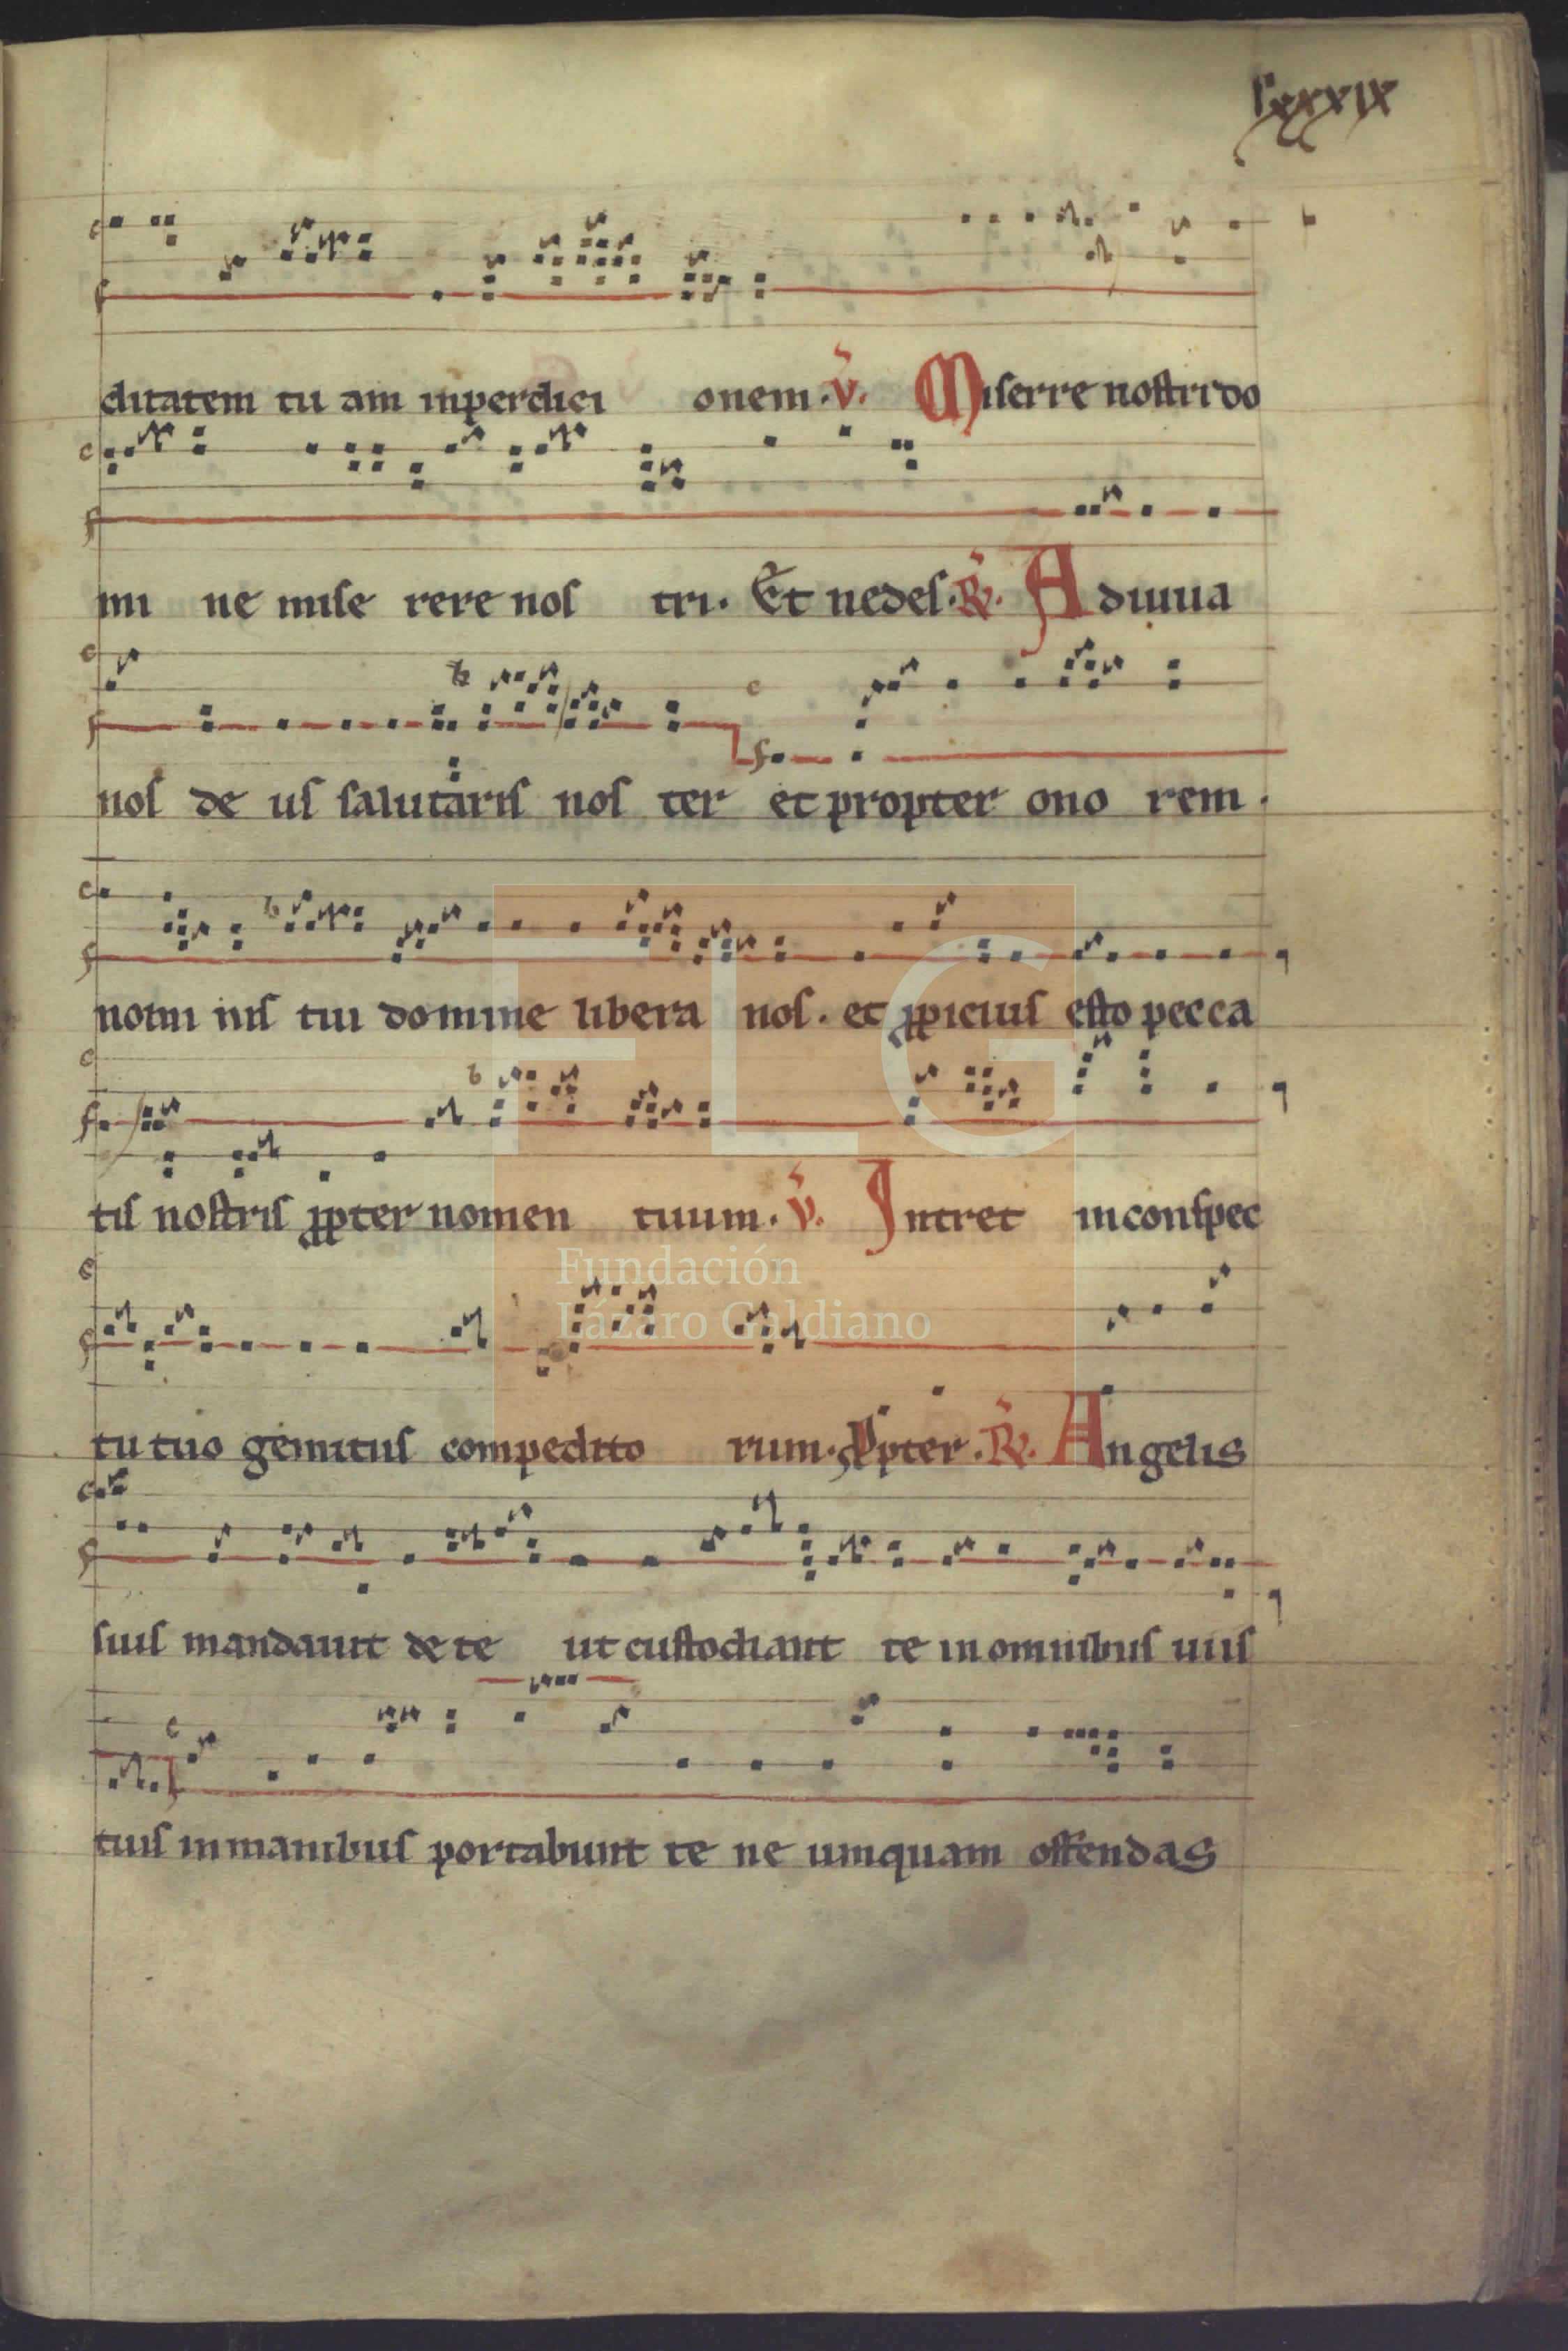 lxxxix
ditatem tu am inperdici onem. V. Miserre nostri do
mi ne mise rere nos tri. Et nedes. R. Adiuua
nos de us salutaris nos ter et propter ono rem.
nomi nis tui domine libera nos. et ppicius esto pecca
tis nostris ppter nomen tuum. V. Intret inconspec
tu tuo gemitus compedito rum. Ppter. R. Angelis
suis mandauit de te ut custodiant te in omnibus uiis
tuis in manibus portabunt te ne umquam offendas
FLG
Fundación
Lázaro Galdiano